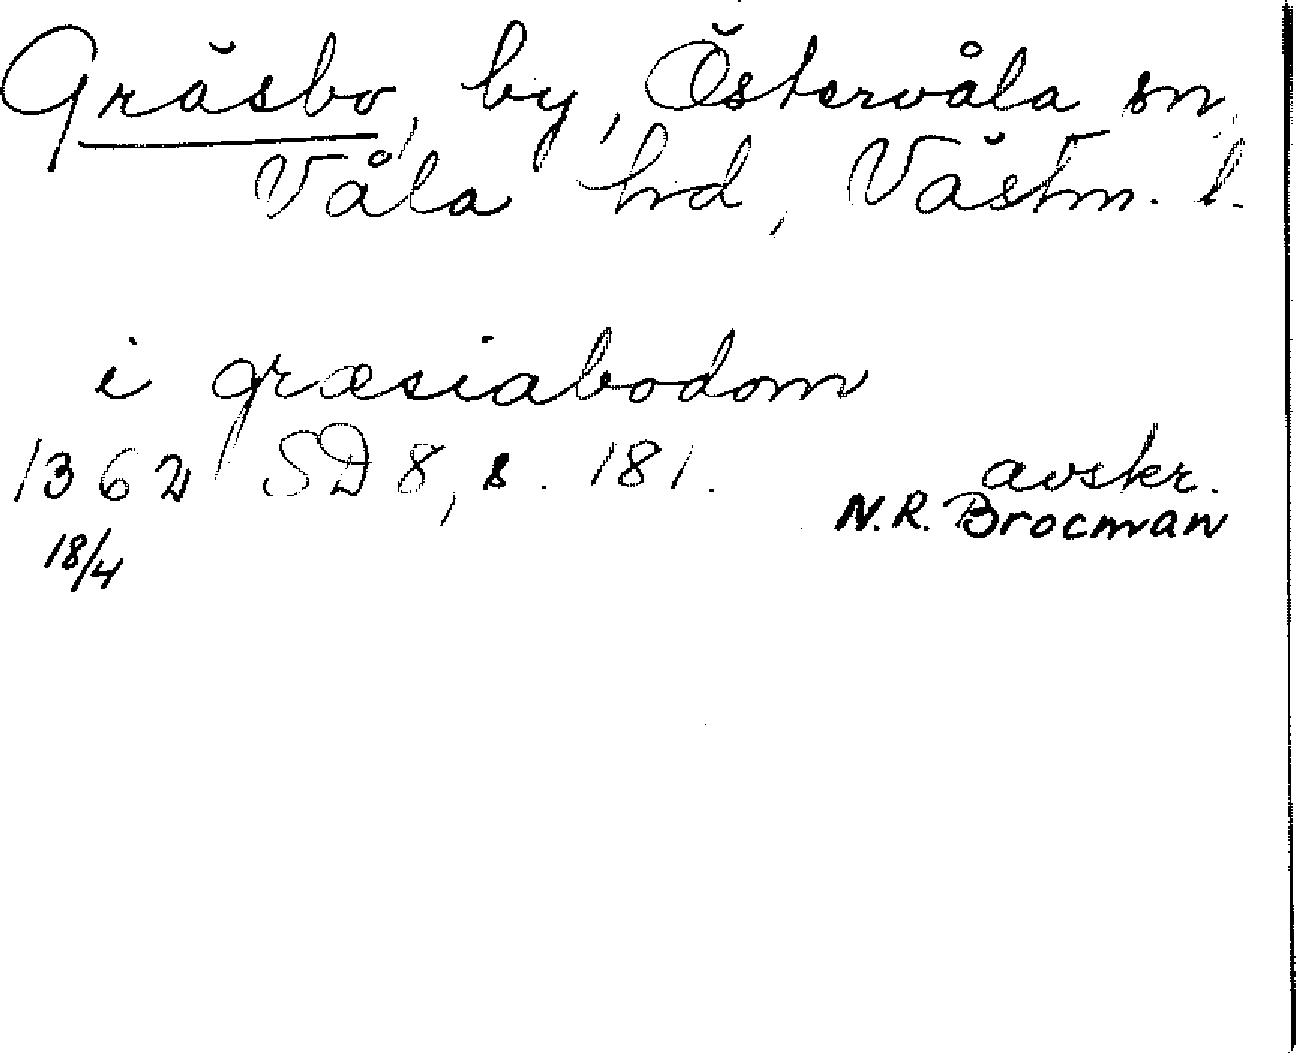 Gräsbo, by, Östervåla sn,
Våla hd, Västm. l.
i græsiabodom
1362 SD 8, s. 181.
18/4
avskr.
N.R. Brocman